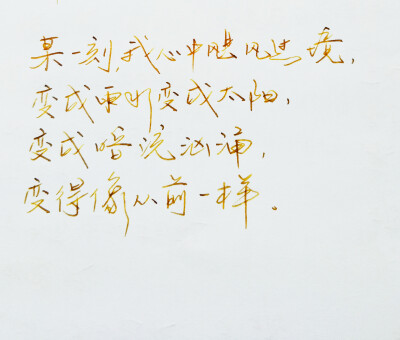 某一刻,我心中飓风过境,
变成雨水变成太阳,
变成暗流汹涌,
变得像从前一样。